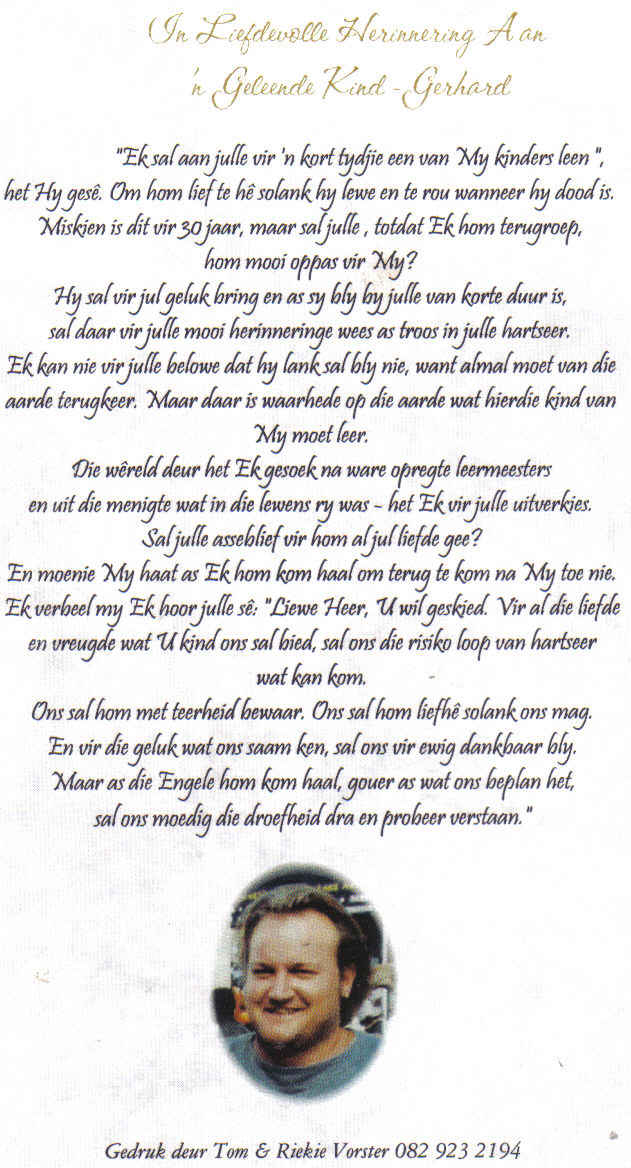 In Liefdevolle Herinnering Aan
'n Geleende Kind - Gerhard
"Ek sal aan julle vir 'n kort tydjie een van My kinders leen ",
het Hy gesê. Om hom lief te hê solank hy lewe en te rou wanneer hy dood is.
Miskien is dit vir 30 jaar, maar sal julle , totdat Ek hom terugroep,
hom mooi oppas vir My?
Hy sal vir jul geluk bring en as sy bly by julle van korte duur is,
sal daar vir julle mooi herinneringe wees as troos in julle hartseer.
Ek kan nie vir julle belowe dat hy lank sal bly nie, want almal moet van die
aarde terugkeer. Maar daar is waarhede op die aarde wat hierdie kind van
My moet leer.
Die wêreld deur het Ek gesoek na ware opregte leermeesters
en uit die menigte wat in die lewens ry was - het Ek vir julle uitverkies.
Sal julle asseblief vir hom al jul liefde gee?
En moenie My haat as Ek hom kom haal om terug te kom na My toe nie.
Ek verbeel my Ek hoor julle sê: "Liewe Heer, U wil geskied. Vir al die liefde
en vreugde wat U kind ons sal bied, sal ons die risiko loop van hartseer
wat kan kom.
Ons sal hom met teerheid bewaar. Ons sal hom liefhê solank ons mag.
En vir die geluk wat ons saam ken, sal ons vir ewig dankbaar bly.
Maar as die Engele hom kom haal, gouer as wat ons beplan het,
sal ons moedig die droefheid dra en probeer verstaan."
Gedruk deur Tom & Riekie Vorster 082 923 2194